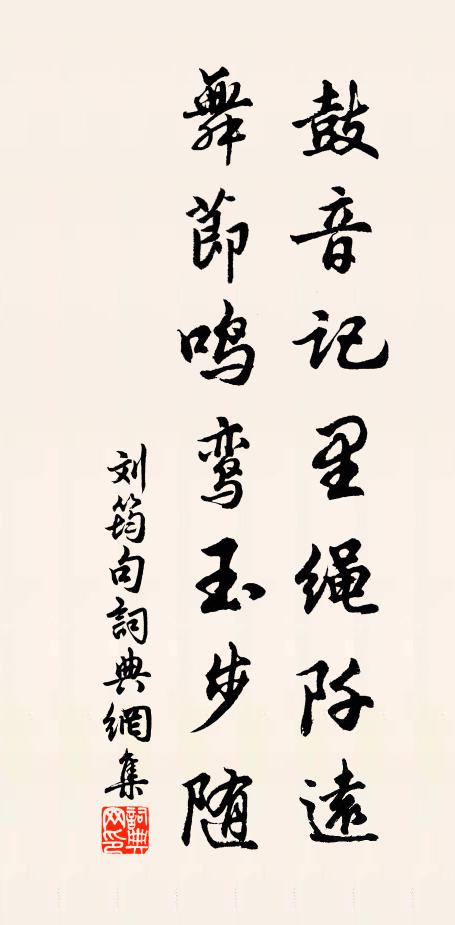 鼓音记里绳阡远
舞節鸣鸾玉步随
刘筠句詞典網集
詞典网印